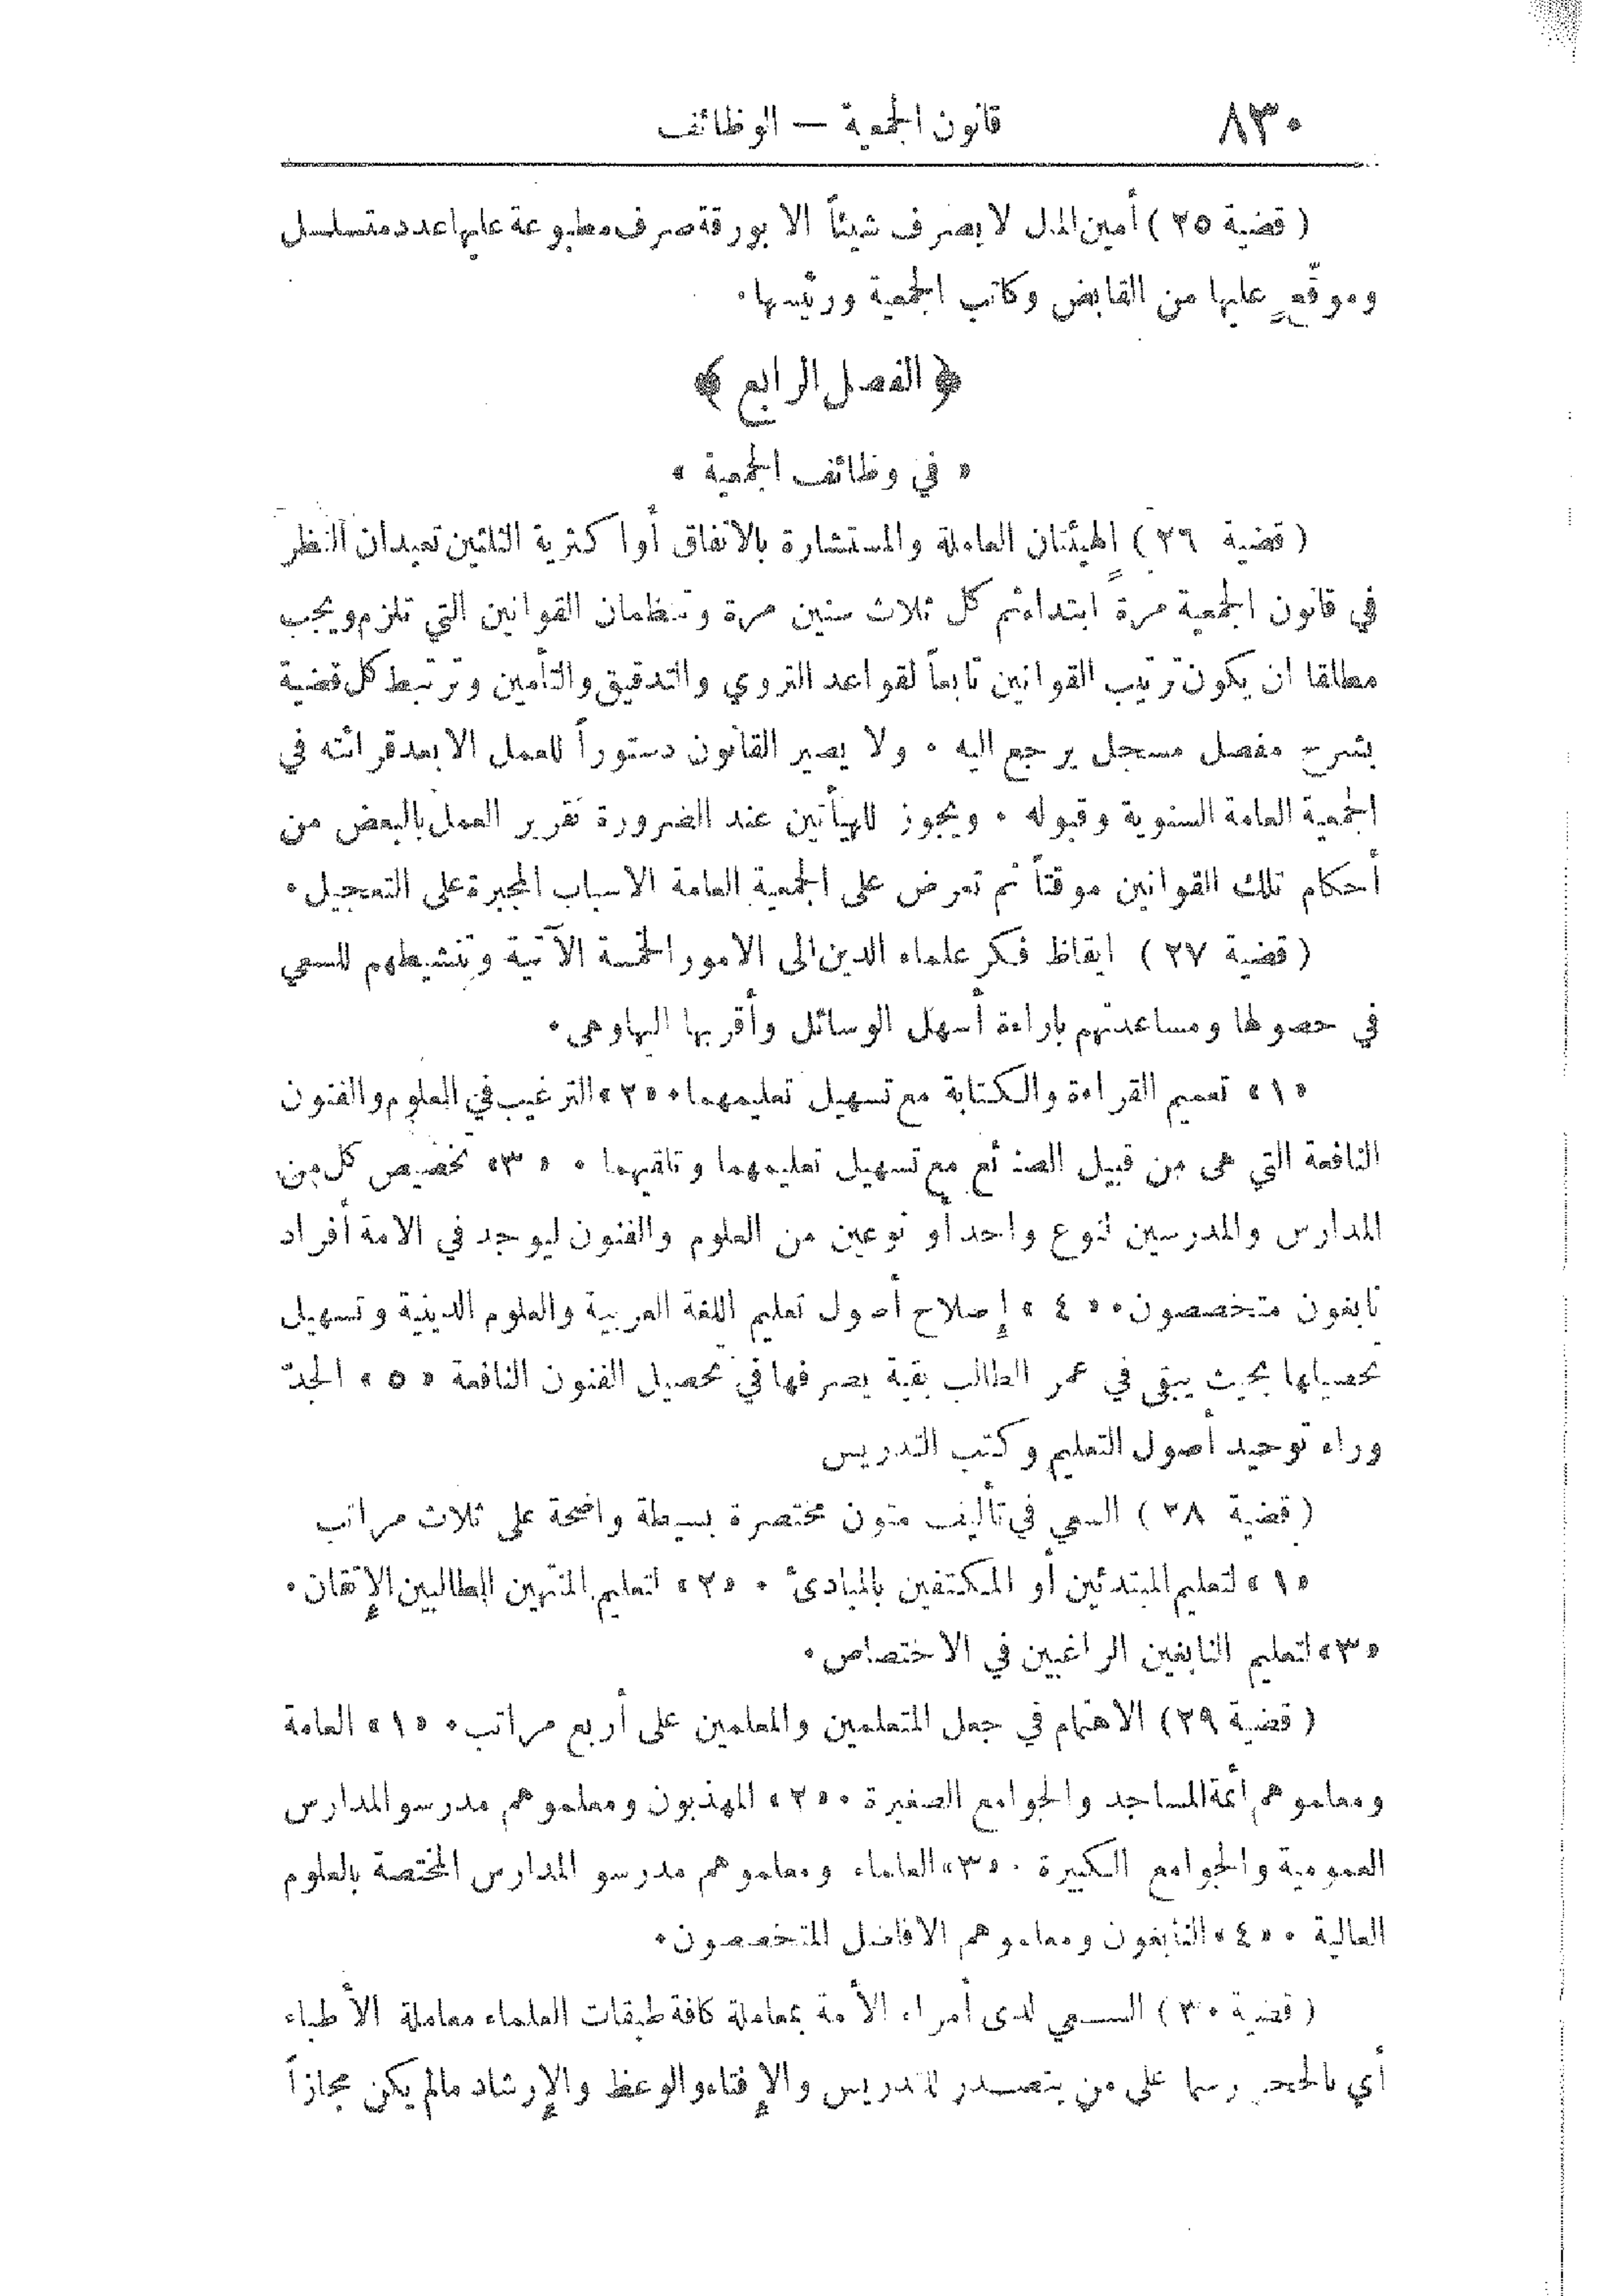 ٨٣٠ قانون الجمعية — الوظائف
( قضية ٢٥ ) أمين المال لا يصرف شيئاً الا بورقة صرف مطبوعة عليها عدد متسلسل
وموقّعٍ عليها من القابض وكاتب الجمعية ورئيسها٠
﴿ الفصل الرابع ﴾
« في وظائف الجمعية »
( قضية ٢٦ ) الهيئتان العاملة والمستشارة بالاتفاق أو اكثرية الثلثين تعيدان النظر
في قانون الجمعية مرةً ابتداء ثم كل ثلاث سنين مرة وتنظمان القوانين التي تلزم ويجب
مطلقا ان يكون ترتيب القوانين تابعاً لقواعد التروي والتدقيق والتأمين وترتبط كل قضية
بشرح مفصل مسجل يرجع اليه ٠ ولا يصير القانون دستوراً للعمل الا بعد قرائته في
الجمعية العامة السنوية وقبوله ٠ ويجوز للهيأتين عند الضرورة تقرير العمل بالبعض من
أحكام تلك القوانين موقتاً ثم تعرض على الجمعية العامة الاسباب المجبرة على التعجيل٠
( قضية ٢٧ ) ايقاظ فكر علماء الدين الى الامور الخمسة الآتية وتنشيطهم للسعي
في حصولها ومساعدتهم باراءة أسهل الوسائل وأقربها اليها وهي٠
« ١ » تعميم القراءة والكتابة مع تسهيل تعليمهما٠ « ٢ » الترغيب في العلوم والفنون
النافعة التي هى من قبيل الصنائع مع تسهيل تعليمهما وتلقيهما ٠ « ٣ » تخصيص كل من
المدارس والمدرسين لنوع واحد أو نوعين من العلوم والفنون ليوجد في الامة أفراد
نابغون متخصصون٠ « ٤ » إصلاح أصول تعليم اللغة العربية والعلوم الدينية وتسهيل
تحصيلها بحيث يبقى في عمر الطالب بقية يصرفها في تحصيل الفنون النافعة « ٥ » الجدّ
وراء توحيد أصول التعليم وكتب التدريس
( قضية ٢٨ ) السعي في تأليف متون مختصرة بسيطة واضحة على ثلاث مراتب
« ١ » لتعليم المبتدئين أو المكتفين بالمبادئ ٠ « ٢ » لتعليم المنتهين الطالبين الإتقان٠
« ٣ » لتعليم النابغين الراغبين في الاختصاص٠
( قضية ٢٩ ) الاهتمام في جعل المتعلمين والمعلمين على أربع مراتب٠ « ١ » العامة
ومعلموهم أئمة المساجد والجوامع الصغيرة ٠ « ٢ » المهذبون ومعلموهم مدرسو المدارس
العمومية والجوامع الكبيرة ٠ « ٣ » العلماء ومعلموهم مدرسو المدارس المختصة بالعلوم
العالية ٠ « ٤ » النابغون ومعلموهم الافاضل المتخصصون٠
( قضية ٣٠ ) السعي لدى أمراء الأمة بمعاملة كافة طبقات العلماء معاملة الأطباء
أي بالحجر رسما على من يتصدر للتدريس والإفتاء والوعظ والإرشاد مالم يكن مجازاً